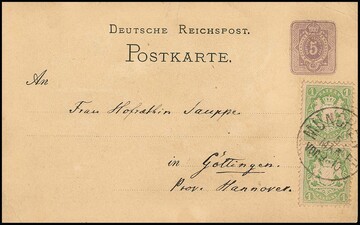 DEUTSCHE REICHSPOST.
POSTKARTE.
5
An
1
Frau Hofräthin Sauppe
in Göttingen.
Prov. Hannover.
1